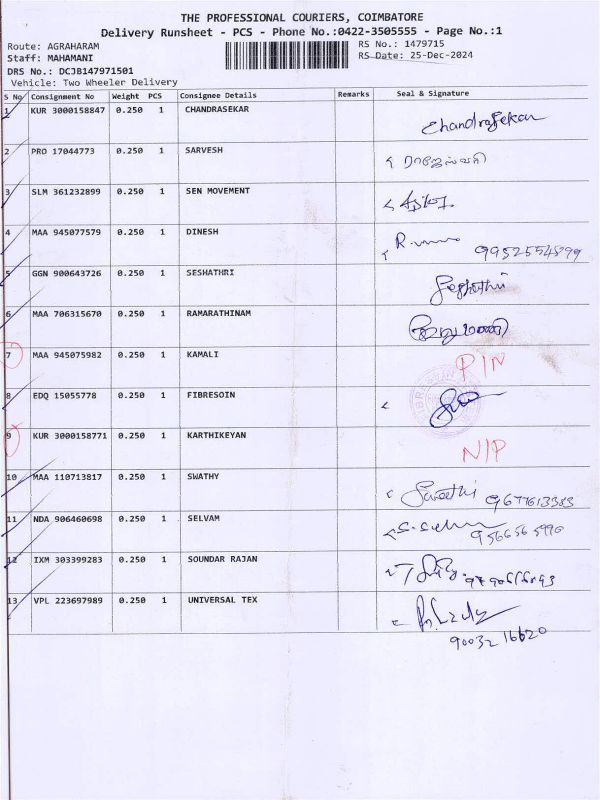 THE PROFESSIONAL COURIERS, COIMBATORE
Delivery Runsheet - PCS - Phone No.:0422-3505555 - Page No.:1
Route: AGRAHARAM RS No.: 1479715
Staff: MAHAMANI RS Date: 25-Dec-2024
DRS No.: DCJB147971501
Vehicle: Two Wheeler Delivery
S No Consignment No Weight PCS Consignee Details Remarks Seal & Signature
1 KUR 3000158847 0.250 1 CHANDRASEKAR Chandrasekar
2 PRO 17044773 0.250 1 SARVESH ராஜேஸ்வரி
3 SLM 361232899 0.250 1 SEN MOVEMENT
4 MAA 945077579 0.250 1 DINESH 9952554899
5 GGN 900643726 0.250 1 SESHATHRI Seshathri
6 MAA 706315670 0.250 1 RAMARATHINAM
7 MAA 945075982 0.250 1 KAMALI P/N
8 EDQ 15055778 0.250 1 FIBRESOIN
9 KUR 3000158771 0.250 1 KARTHIKEYAN N/P
10 MAA 110713817 0.250 1 SWATHY Swathi 9677613383
11 NDA 906460698 0.250 1 SELVAM 9566565990
12 IXM 303399283 0.250 1 SOUNDAR RAJAN
13 VPL 223697989 0.250 1 UNIVERSAL TEX
9003216620